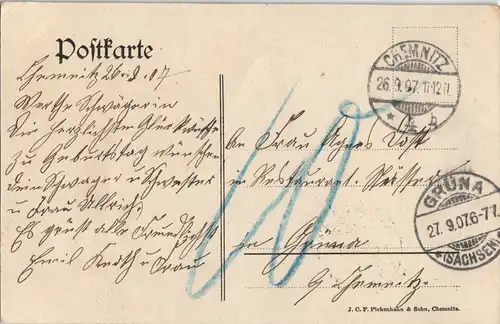 Postkarte
Chemnitz 26.9.07
Werthe Schwägerin
Die herzlichsten Glückwünsche
zu Geburtstag wünschen
dein Schwager u Schwester
u Frau Ullrich.
Es grüsst alle
Emil u Frau
An Frau Agnes
in Restaurant
in Grüna
b/ Chemnitz.
10
CHEMNITZ
26.9.07. 11-12 V.
* 1 b
GRÜNA
27.9.07. 6-7 V.
*(SACHSEN)
J. C. F. Pickenhahn & Sohn, Chemnitz.